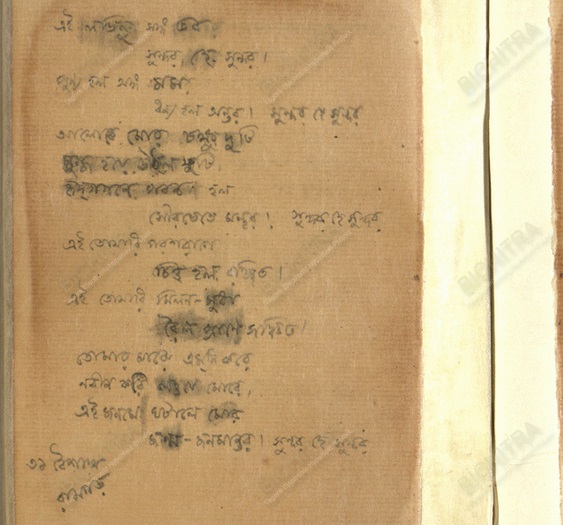 এই লভিনু সঙ্গ তব,
সুন্দর, হে সুন্দর।
পুণ্য হল অঙ্গ মম,
ধন্য হল অন্তর। সুন্দর হে সুন্দর
আলোকে মোর চক্ষু দুটি
মুগ্ধ হয়ে উঠল ফুটি,
হৃদ্গগনে পবন হল
সৌরভেতে মন্থর। সুন্দর হে সুন্দর
এই তোমারি পরশরাগে
চিত্ত হল রঞ্জিত।
এই তোমারি মিলন-সুধা
রৈল প্রাণে সঞ্চিত।
তোমার মাঝে এমনি করে
নবীন করি লও যে মোরে,
এই জনমে ঘটালে মোর
জনম-জনমান্তর। সুন্দর হে সুন্দর
৩১ বৈশাখ
রামগড়
BICHITRA
BICHITRA
BICHITRA
BICHITRA